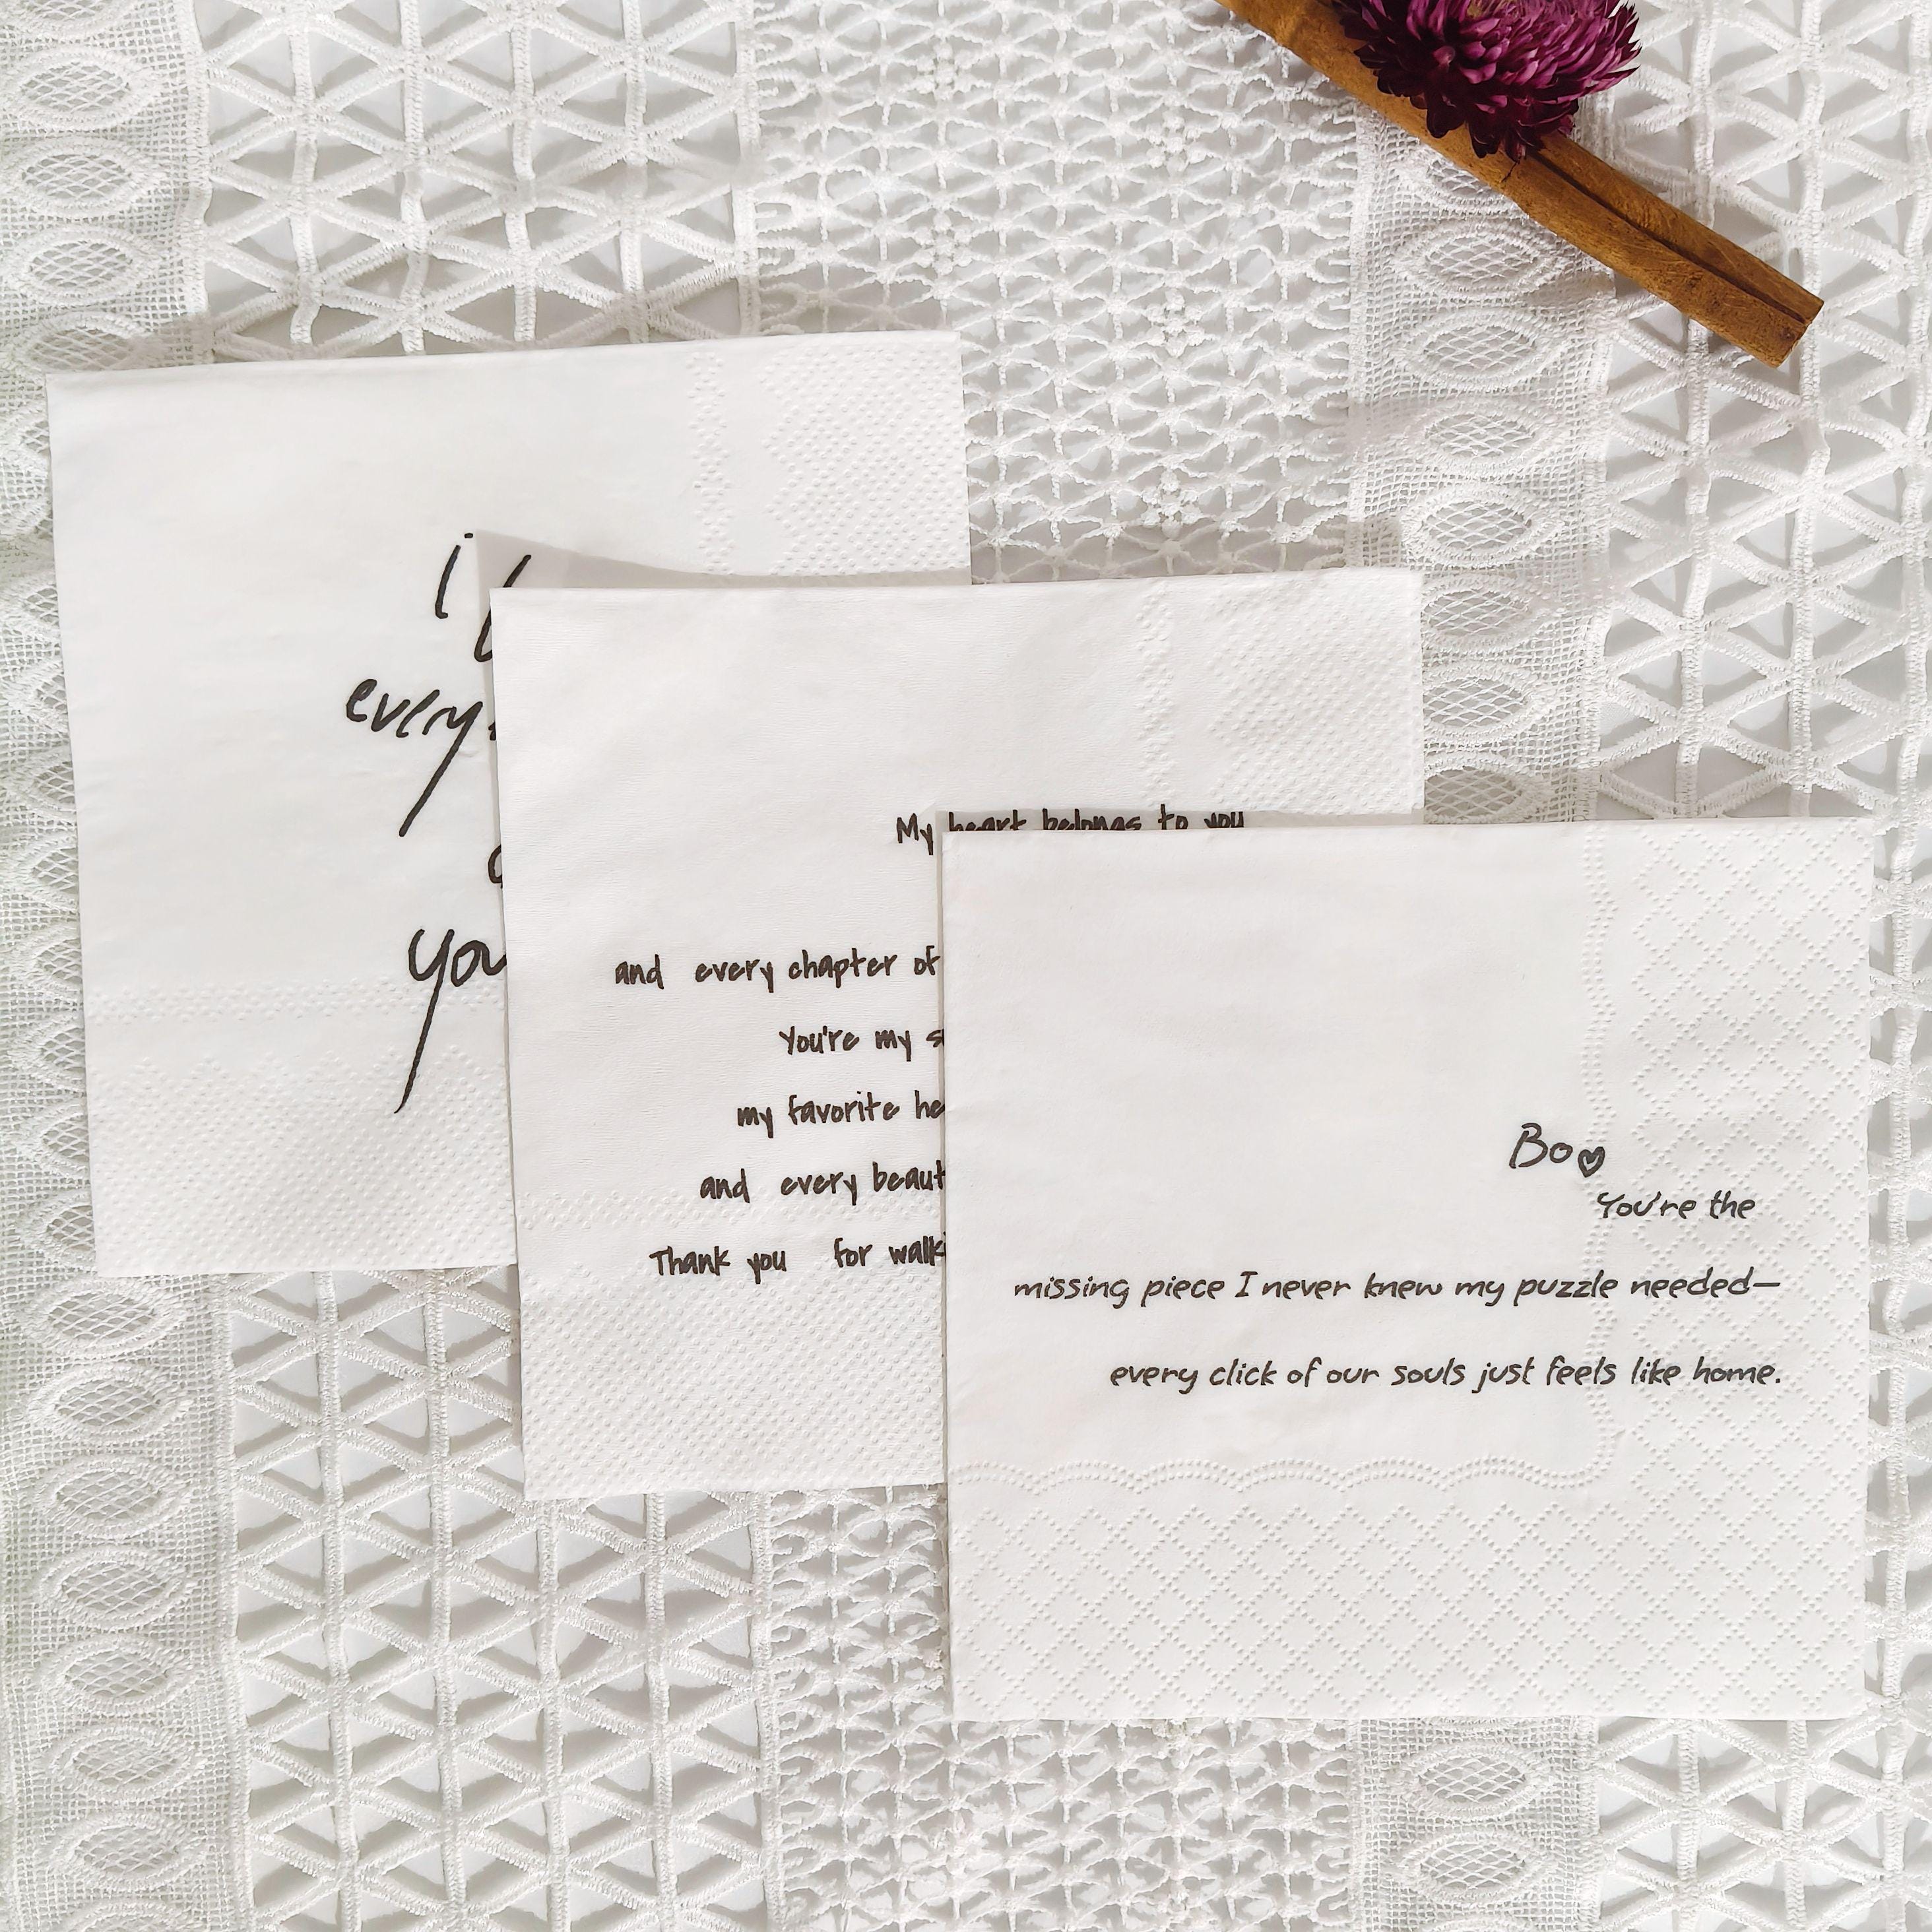 i
every
you
My heart belongs to you
and every chapter of
You're my
my favorite
and every
Thank you for
Bo♥
You're the
missing piece I never knew my puzzle needed—
every click of our souls just feels like home.